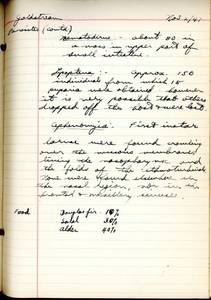 Goldstream Nov 2/41
Parasites (contd)
Nematodes - about 50 in
a mass in upper part of
small intestine.
Lipoptena: - Approx. 150
individuals from which 15
puparia were obtained, however
it is very possible that others
dropped off the host & were lost.
Cephenomyia: First instar
larvae were found crawling
over the mucous membranes
lining the nasopharynx and
the folds of the ethmoturbinals
None were found elsewhere in
the nasal region, nor in the
frontal & maxillary sinuses.
Food Douglas fir - 10%
Salal 30%
alder 60%